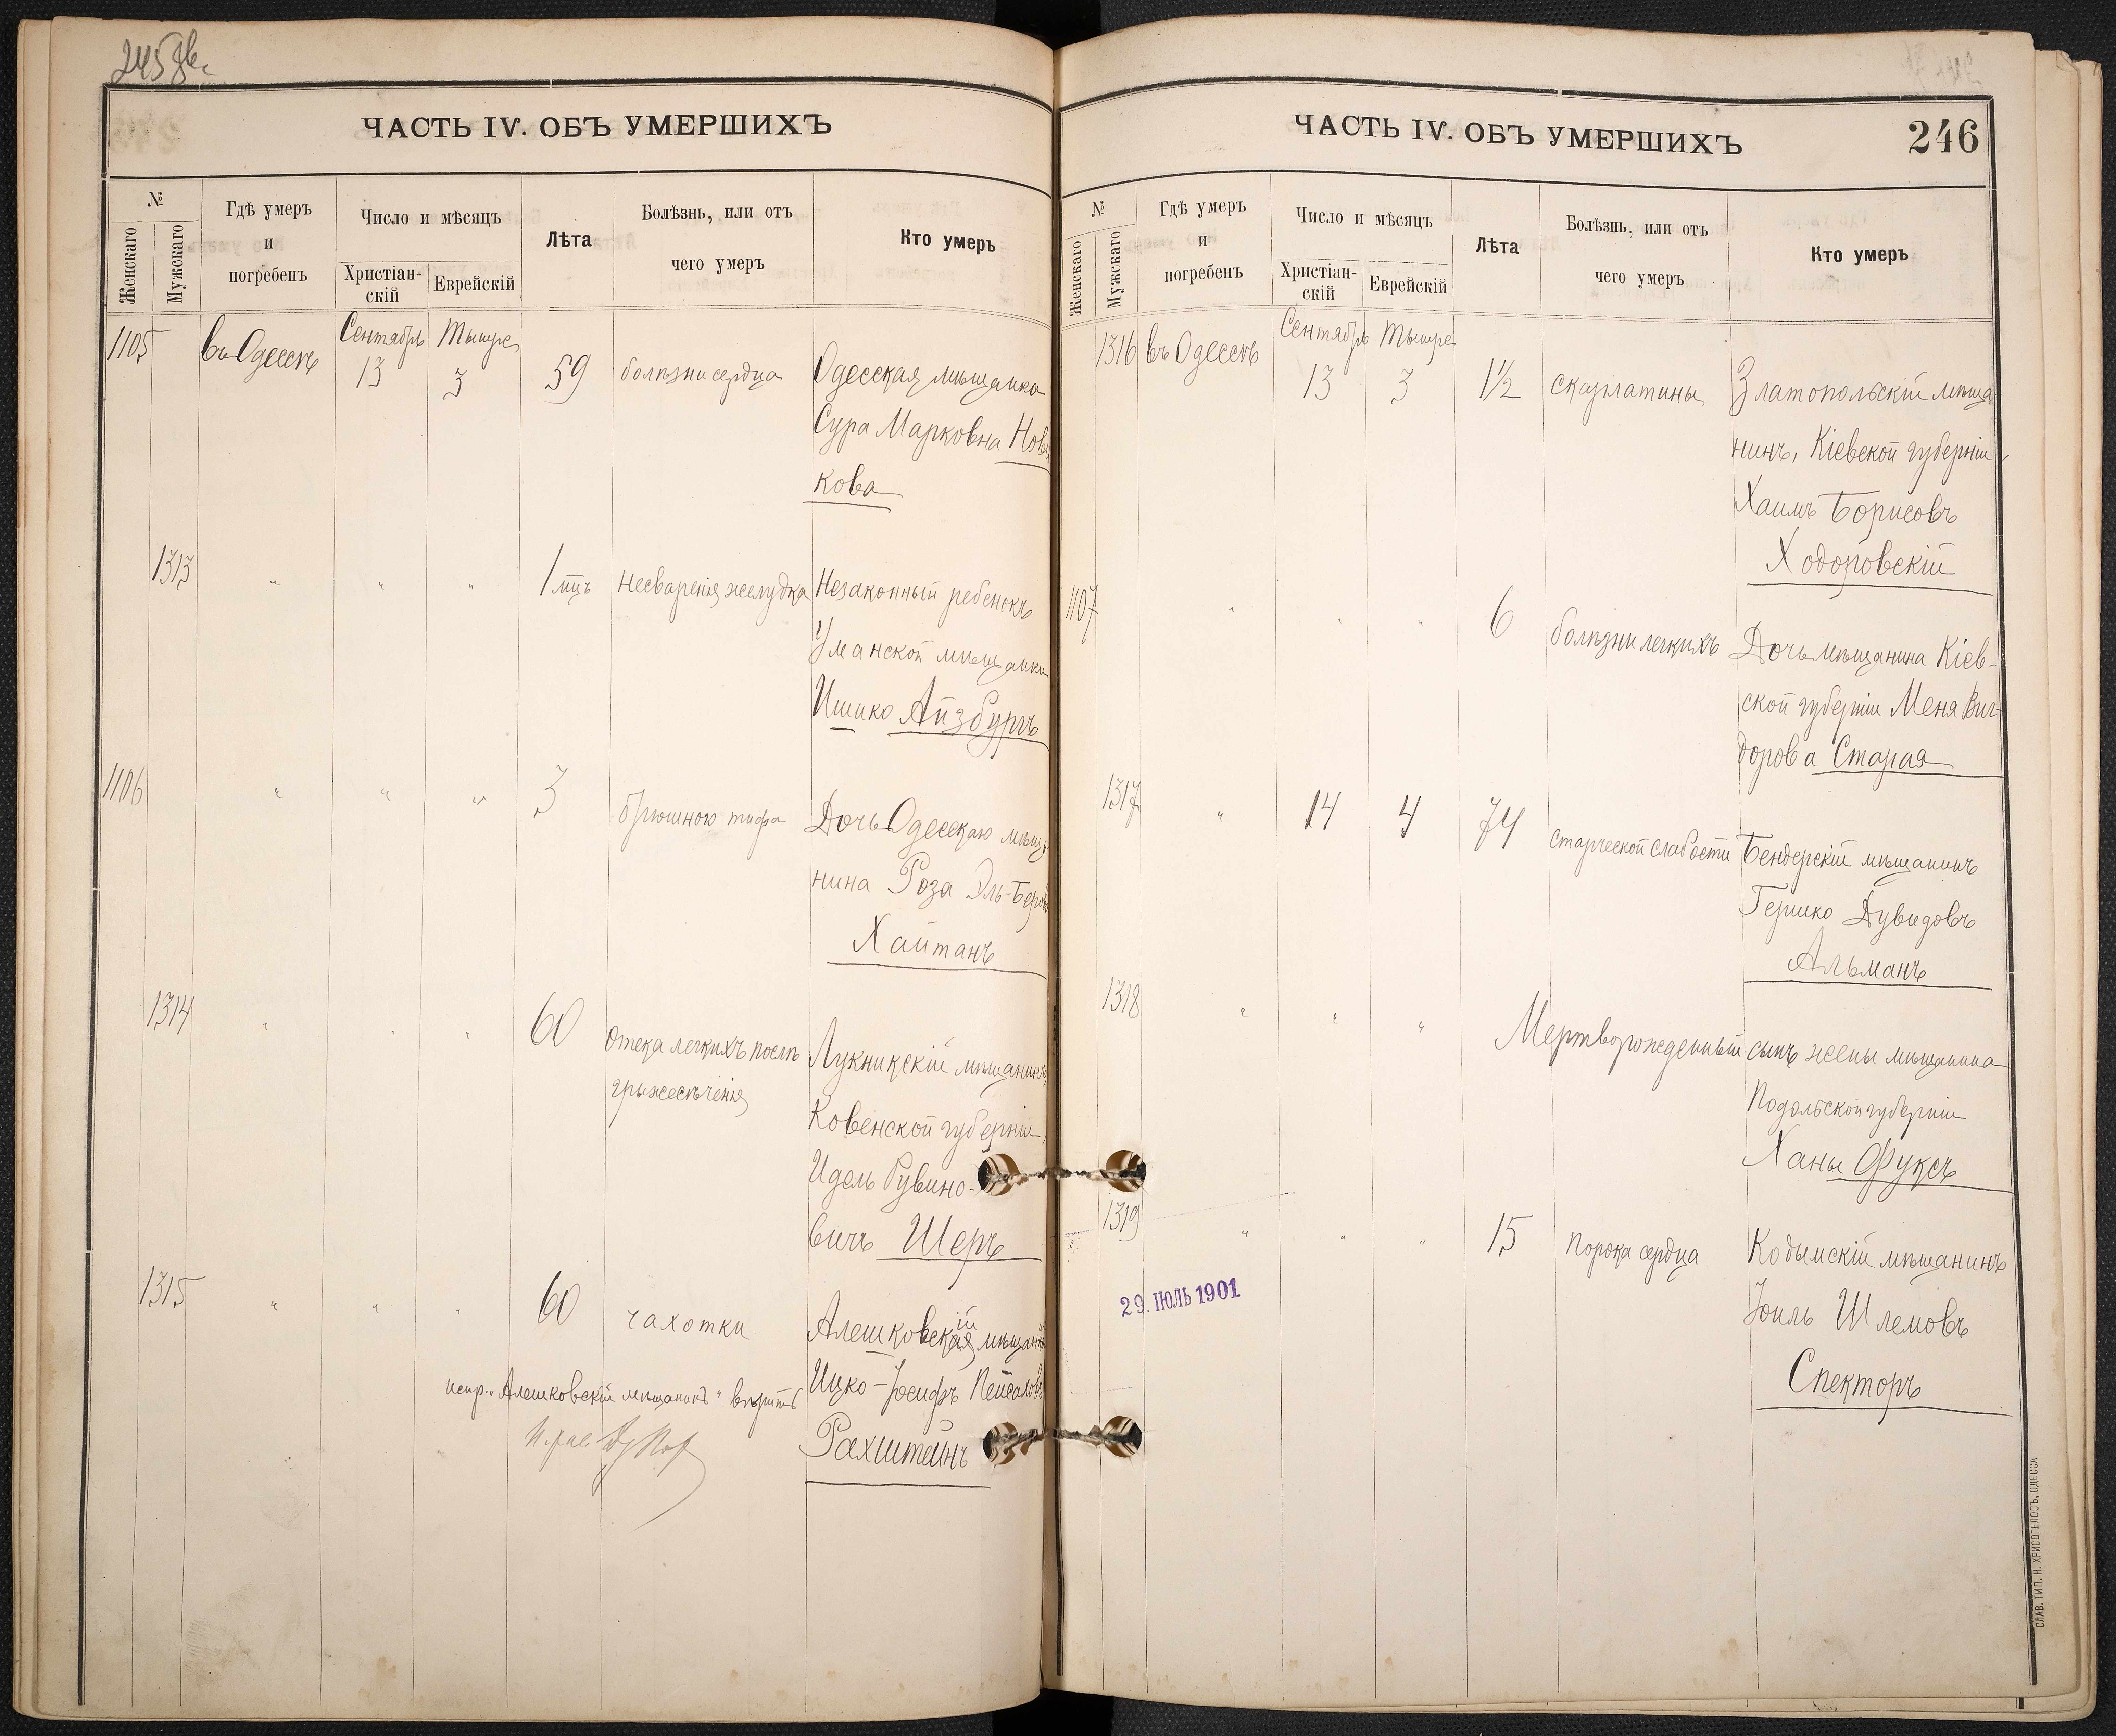 245
ЧАСТЬ IV. ОБЪ УМЕРШИХЪ
№
Женскаго
Мужскаго
Гдѣ умеръ
и
погребенъ
Число и мѣсяцъ
Христіан-
скій
Еврейскій
Лѣта
Болѣзнь, или отъ
чего умеръ
Кто умеръ
1105 въ Одессѣ Сентябрь Тышре
13 3 59 болѣзни сердца Одесская мѣщанка
Сура Марковна Нови
кова
1313 " " " 1 мцъ несваренія желудка Незаконный ребенокъ
Уманской мѣщанки
Ицко Айзбургъ
1106 " " " 3 брюшного тифа Дочь Одесскаго мѣща
нина Роза Эль-Берова
Хайтанъ
1314 " " " 60 отека легкихъ послѣ Лукникскій мѣщанинъ
грыжесѣченія
Ковенской губерніи,
Идель Рувино-
вичъ Шеръ
1315 " " " 60 чахотки Алешковскій мѣщан
испр. "Алешковскій мѣщанинъ" вѣрить Ицко-Іосифъ Пейсаховъ
Рахштейнъ
ЧАСТЬ IV. ОБЪ УМЕРШИХЪ
246
№
Женскаго
Мужскаго
Гдѣ умеръ
и
погребенъ
Число и мѣсяцъ
Христіан-
скій
Еврейскій
Лѣта
Болѣзнь, или отъ
чего умеръ
Кто умеръ
1316 въ Одессѣ Сентябрь Тышре
13 3 1½ скарлатины Златопольскій мѣща
нинъ, Кіевской губерніи,
Хаимъ Борисовъ
Ходоровскій
1107 " " " 6 болѣзни легкихъ Дочь мѣщанина Кіев-
ской губерніи Меня Виг-
дорова Старая
1317 " 14 4 74 старческой слабости Бендерскій мѣщанинъ
Гершко Дувидовъ
Альманъ
1318 " " " Мертворожденный сынъ жены мѣщанина
Подольской губерніи
Ханы Фуксъ
1319 " " " 15 порока сердца Кодымскій мѣщанинъ
Іоиль Шлемовъ
Спекторъ
29. ІЮЛЬ 1901
СЛАВ. ТИП. Н. ХРИСОГЕЛОСЪ, ОДЕССА